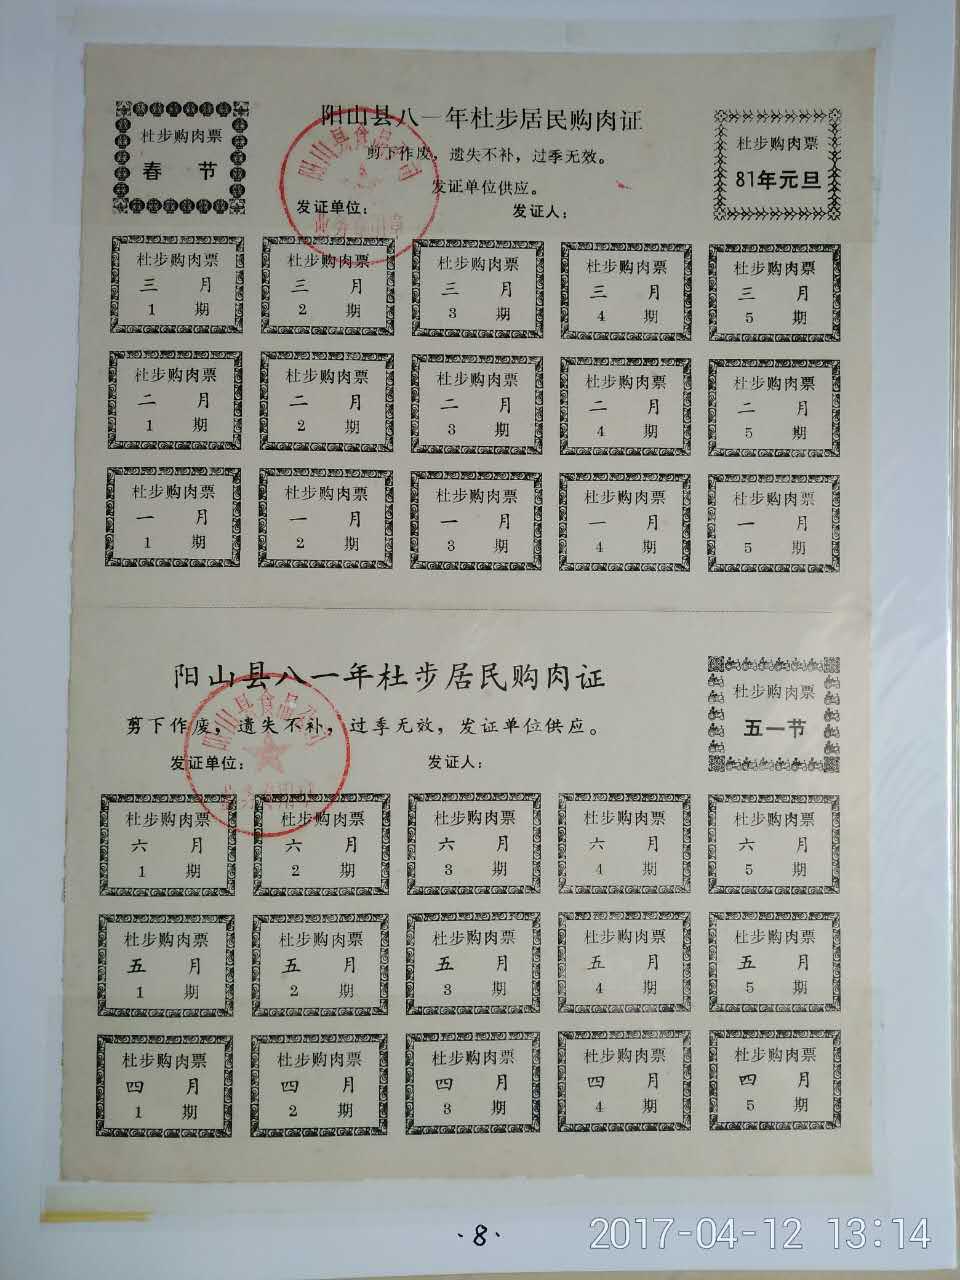 阳山县八一年杜步居民购肉证
剪下作废，遗失不补，过季无效。
发证单位供应。
发证单位： 发证人：
杜步购肉票
春 节
杜步购肉票
81年元旦
阳山县食品公司
杜步购肉票 杜步购肉票 杜步购肉票 杜步购肉票 杜步购肉票
三 月 三 月 三 月 三 月 三 月
1 期 2 期 3 期 4 期 5 期
杜步购肉票 杜步购肉票 杜步购肉票 杜步购肉票 杜步购肉票
二 月 二 月 二 月 二 月 二 月
1 期 2 期 3 期 4 期 5 期
杜步购肉票 杜步购肉票 杜步购肉票 杜步购肉票 杜步购肉票
一 月 一 月 一 月 一 月 一 月
1 期 2 期 3 期 4 期 5 期
阳山县八一年杜步居民购肉证
剪下作废，遗失不补，过季无效，发证单位供应。
发证单位： 发证人：
杜步购肉票
五一节
阳山县食品公司
杜步购肉票 杜步购肉票 杜步购肉票 杜步购肉票 杜步购肉票
六 月 六 月 六 月 六 月 六 月
1 期 2 期 3 期 4 期 5 期
杜步购肉票 杜步购肉票 杜步购肉票 杜步购肉票 杜步购肉票
五 月 五 月 五 月 五 月 五 月
1 期 2 期 3 期 4 期 5 期
杜步购肉票 杜步购肉票 杜步购肉票 杜步购肉票 杜步购肉票
四 月 四 月 四 月 四 月 四 月
1 期 2 期 3 期 4 期 5 期
·8·
2017-04-12 13:14